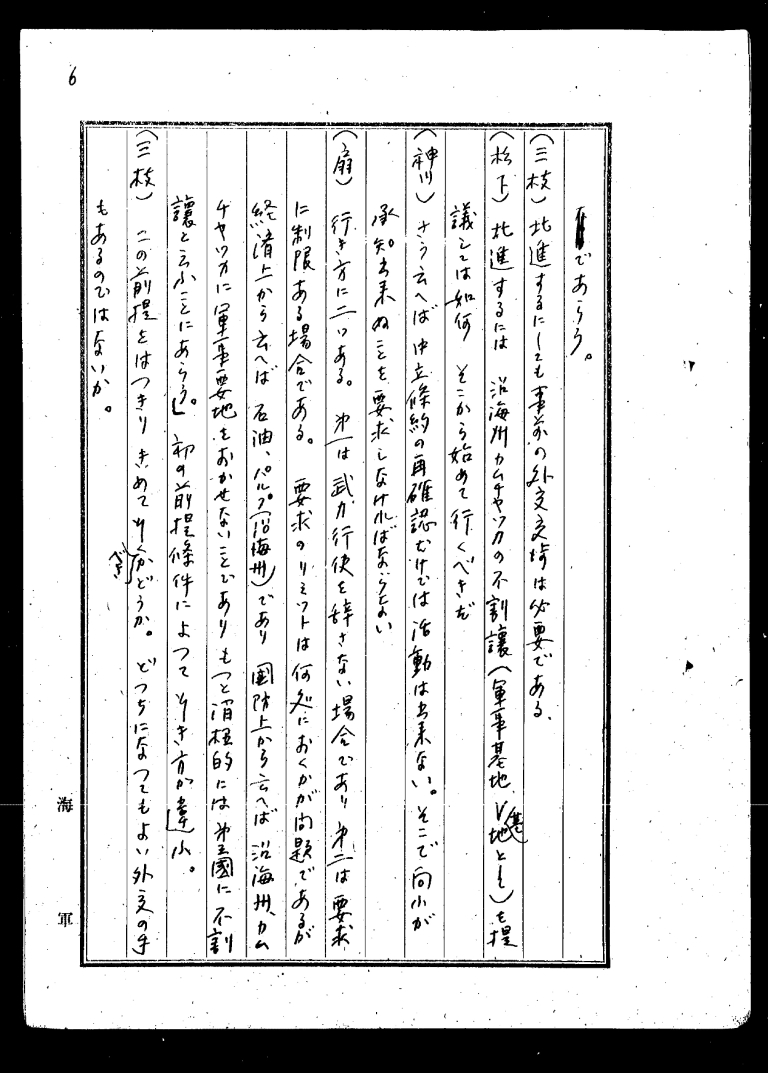 6
であらう。
（三枝）北進するにしても事前の外交交渉は必要である、
（松下）北進するには 沿海州カムチヤツカの不割譲（軍事基地 進地として）を提
議しては如何 そこから始めて行くべきだ
（神川）さう云へば中立條約の再確認だけでは活動は出来ない。そこで向ふが
承知出来ぬことを要求しなければならない
（扇）行き方に二つある。第一は武力行使を辞さない場合であり第二は要求
に制限ある場合である。 要求のリミツトは何処におくかが問題であるが
経済上から云へば 石油、パルプ（沿海州）であり 国防上から云へば 沿海州、カム
チヤツカに軍事要地をおかせないことであり もつと消極的には第三國に不割
譲と云ふことにあらう。 初の前提條件によつて 行き方が違ふ。
（三枝） この前提をはつきり きめて 行くべきかどうか。 どつちになつてもよい外交の手
もあるのではないか。
海軍